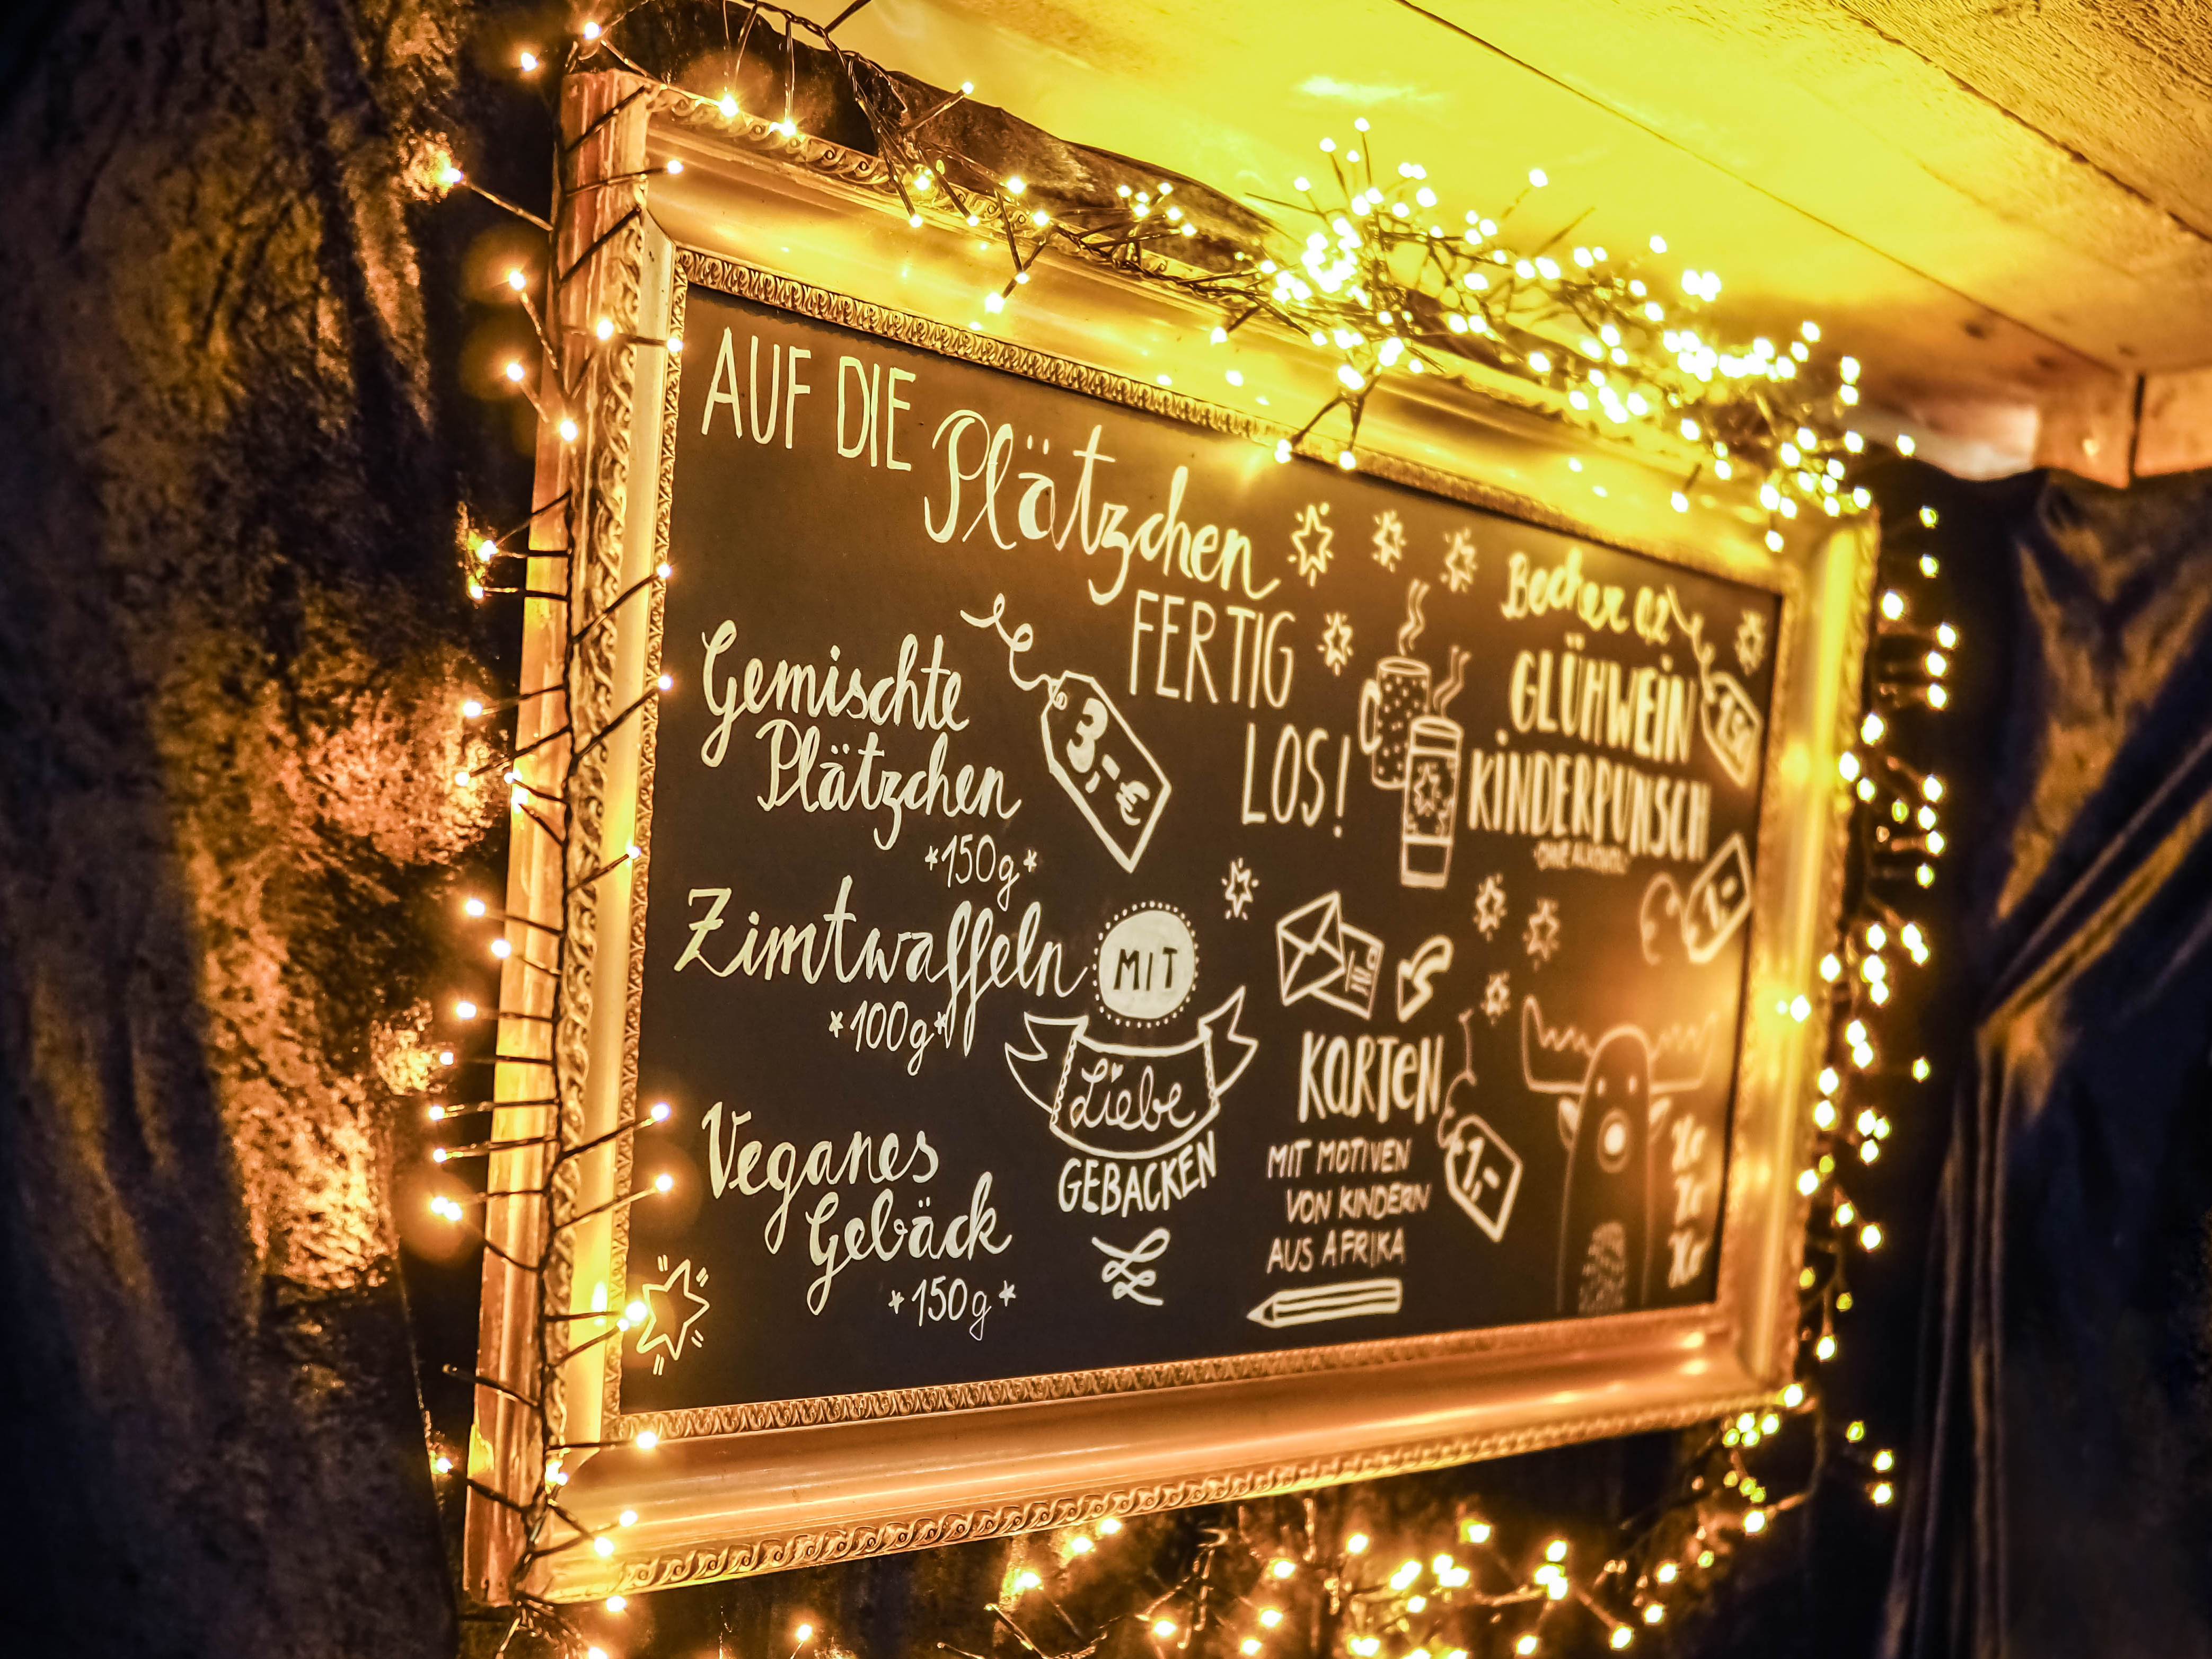 AUF DIE
Plätzchen
FERTIG
LOS!
Gemischte
Plätzchen
*150g*
3,-€
Zimtwaffeln
*100g*
Veganes
Gebäck
*150g*
MIT
Liebe
GEBACKEN
Becher
GLÜHWEIN
KINDERPUNSCH
1,-
KARTEN
MIT MOTIVEN
VON KINDERN
AUS AFRIKA
1,-